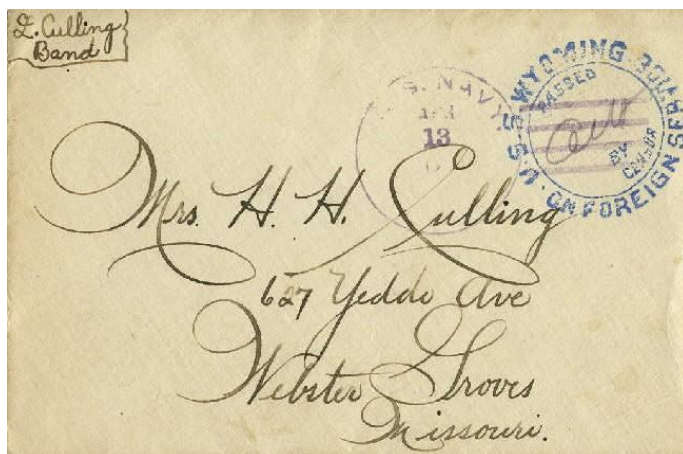 L. Culling
Band
U.S. NAVY.
APR
13
U.S.S. WYOMING
ON FOREIGN SERVICE
PASSED
BY
CENSOR
Mrs. H. H. Culling
627 Yeddo Ave
Webster Groves
Missouri.